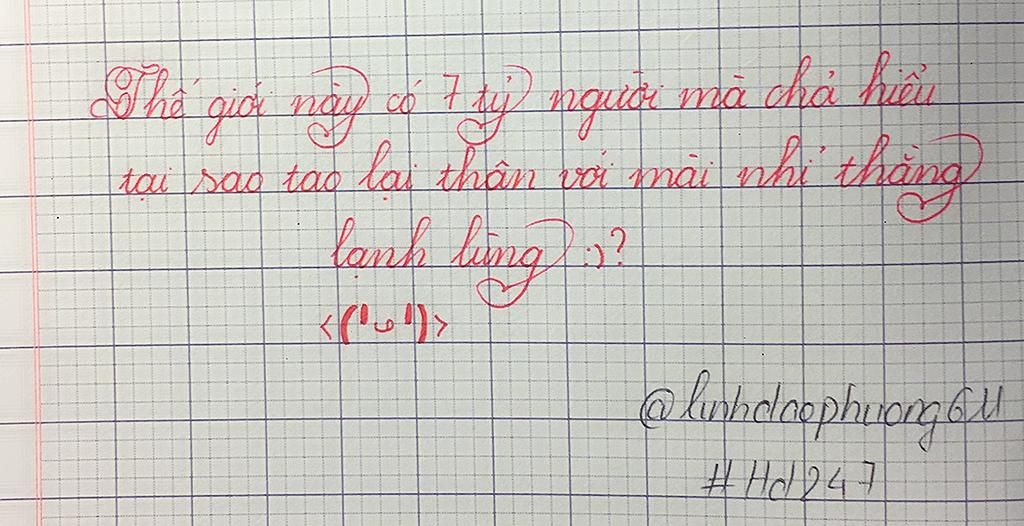 Thế giới này có 7 tỷ người mà chả hiểu
tại sao tao lại thân với mài nhỉ thằng
lạnh lùng :)?
<('ᴗ')>
@linhdaophuong6U
#Hd247